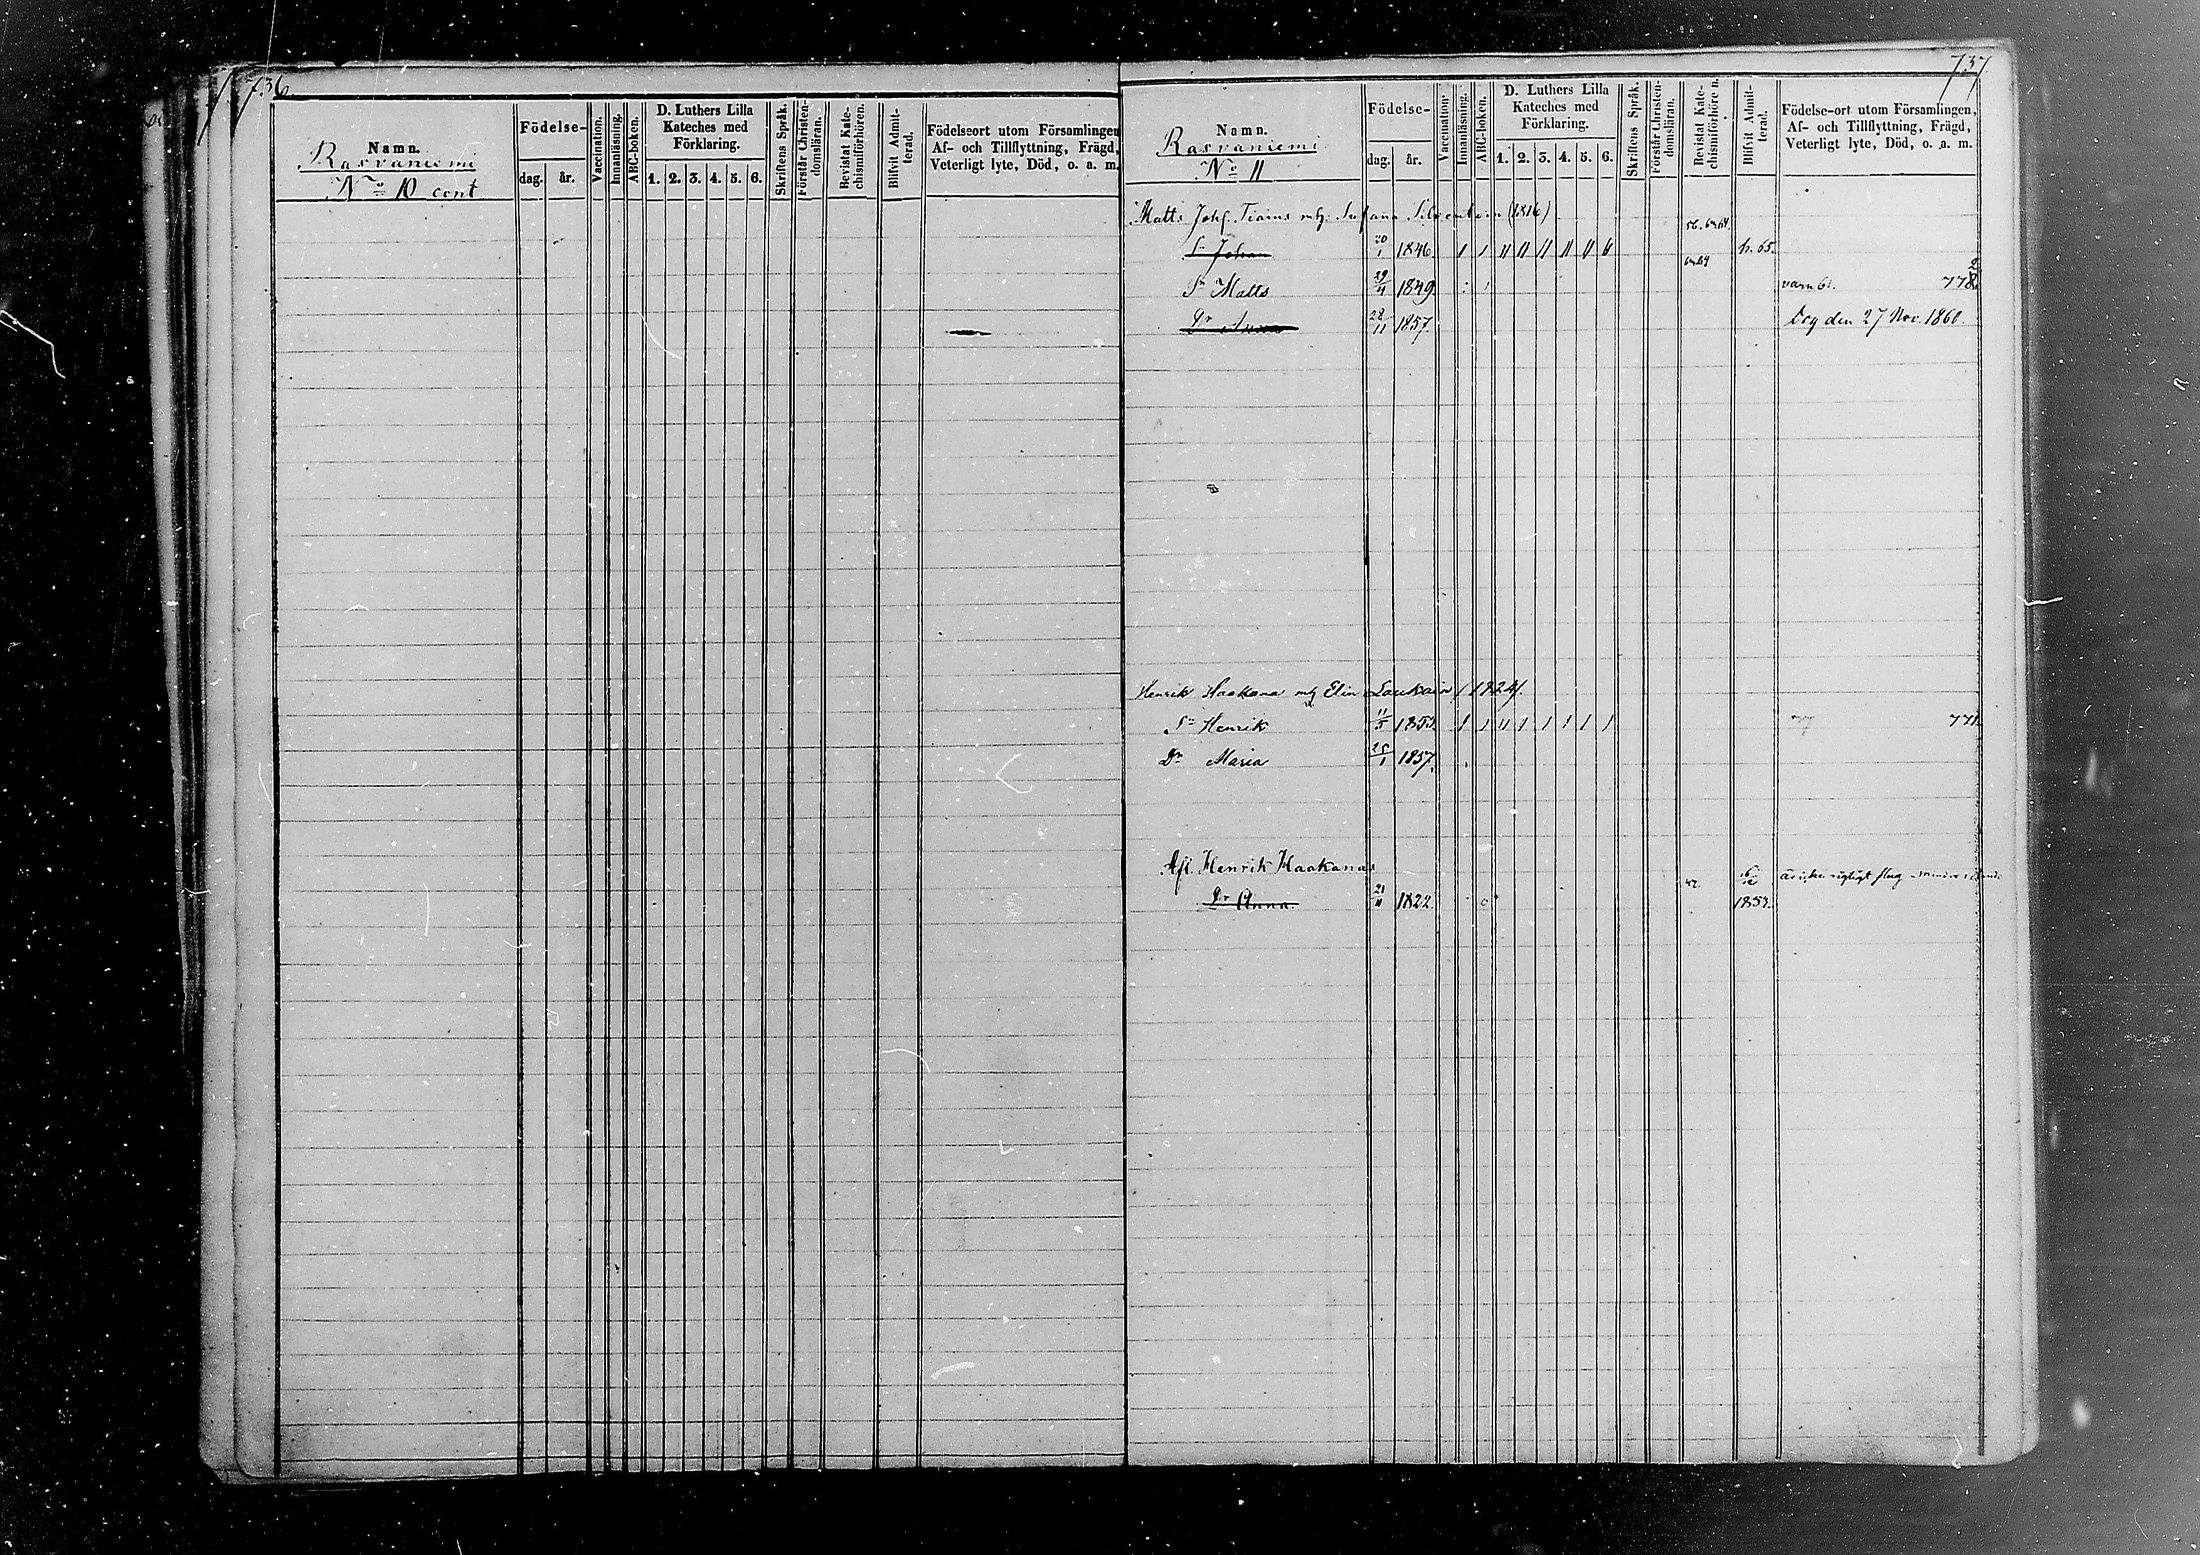 736.
Namn.
Rasvaniemi
No 10 cont
Födelse-
dag. år.
Vaccination.
Innanläsning.
ABC-boken.
D. Luthers Lilla
Kateches med
Förklaring.
1. 2. 3. 4. 5. 6.
Skriftens Språk.
Förstår Christen-
domsläran.
Bevistat Kate-
chismiförhören.
Blifvit Admit-
terad.
Födelseort utom Församlingen
Af- och Tillflyttning, Frägd,
Veterligt lyte, Död, o. a. m.
737
Namn.
Rasvaniemi
No 11
Födelse-
dag. år.
Vaccination.
Innanläsning.
ABC-boken.
D. Luthers Lilla
Kateches med
Förklaring.
1. 2. 3. 4. 5. 6.
Skriftens Språk.
Förstår Christen-
domsläran.
Bevistat Kate-
chismiförhören.
Blifvit Admit-
terad.
Födelse-ort utom Församlingen,
Af- och Tillflyttning, Frägd,
Veterligt lyte, Död, o. a. m.
Matts Johs. (1816)
Sn Johan 20/1 1846 h. 65.
Sn Matts 29/4 1849. 778
Dr 28/11 1857 Dog den 27 Nov. 1860.
Henrik Haakana mg Elin Laukain /1824/.
Sn Henrik 11/5 1853 771
Dr Maria 1857.
Afl. Henrik Haakanas
Dr Anna. 21/11 1822. 1859.